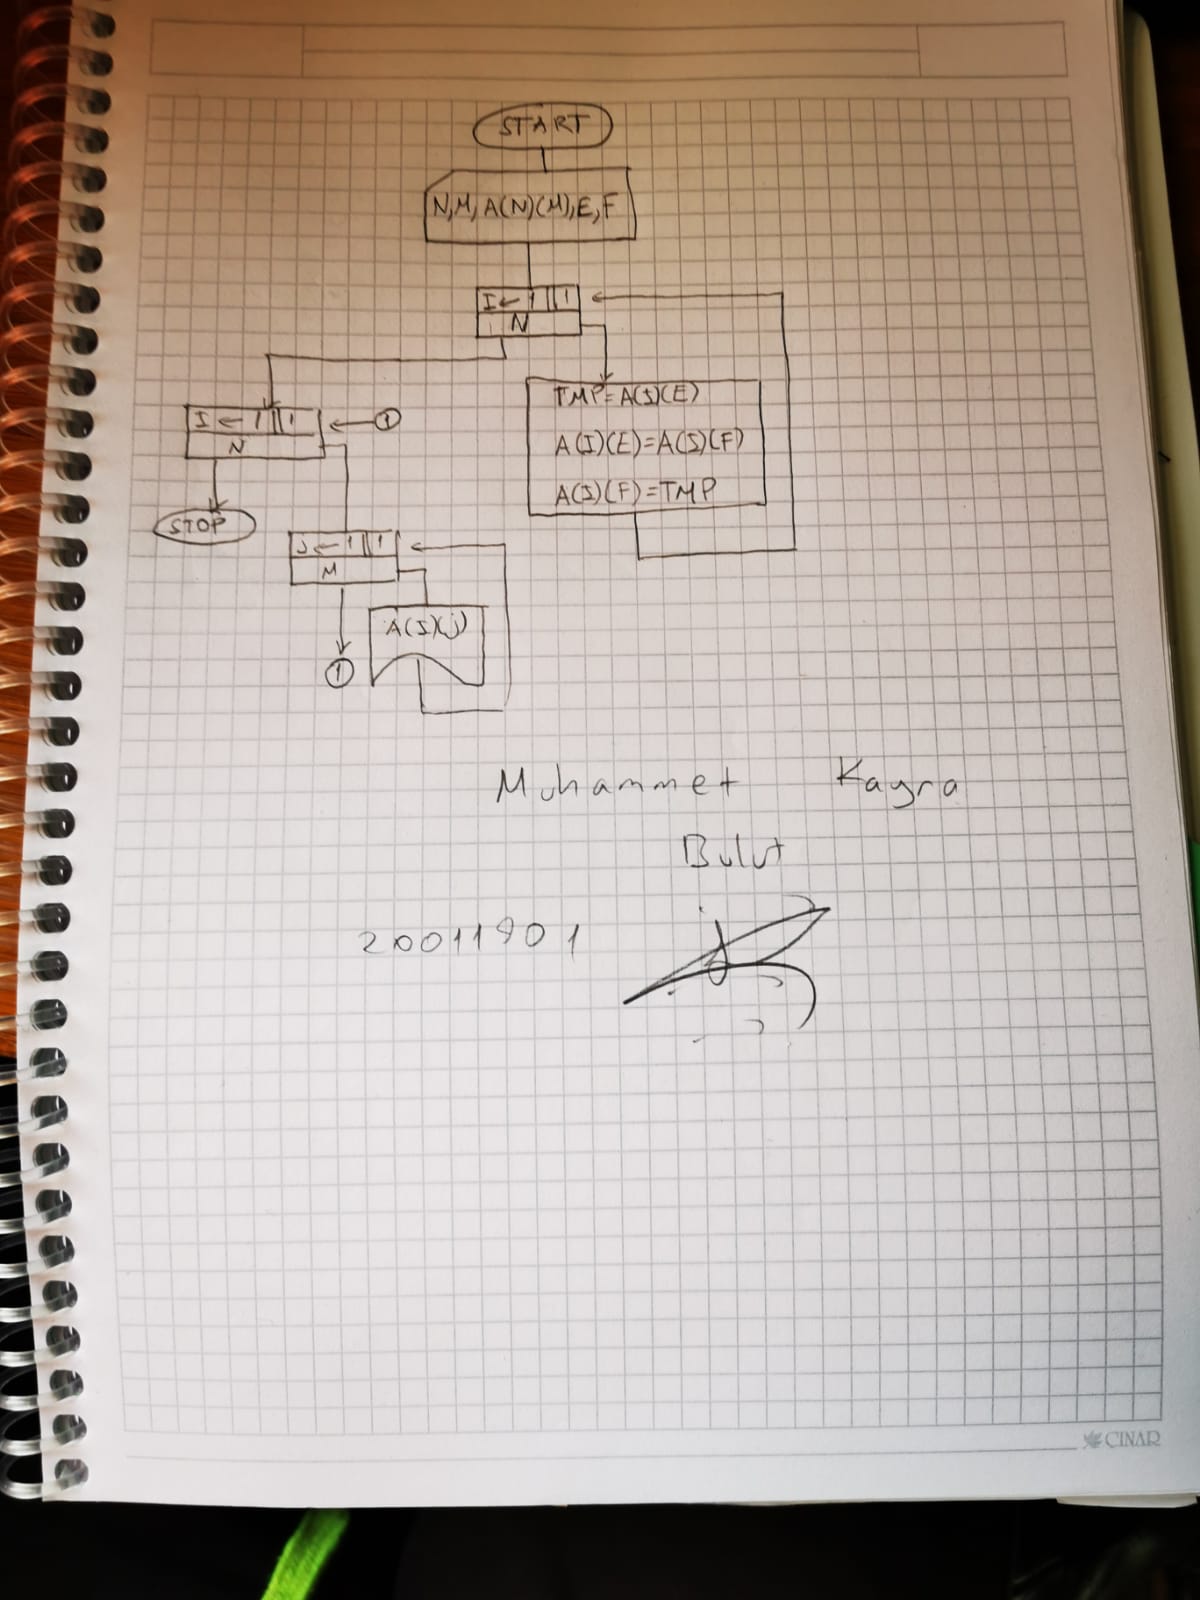 START
N,M,A(N)(M),E,F
I ← 1 1
N
TMP=A(I)(E)
A(I)(E)=A(I)(F)
A(I)(F)=TMP
I ← 1 1
N
1
STOP
J ← 1 1
M
A(I)(j)
1
Muhammet Kayra
Bulut
20011901
CINAR